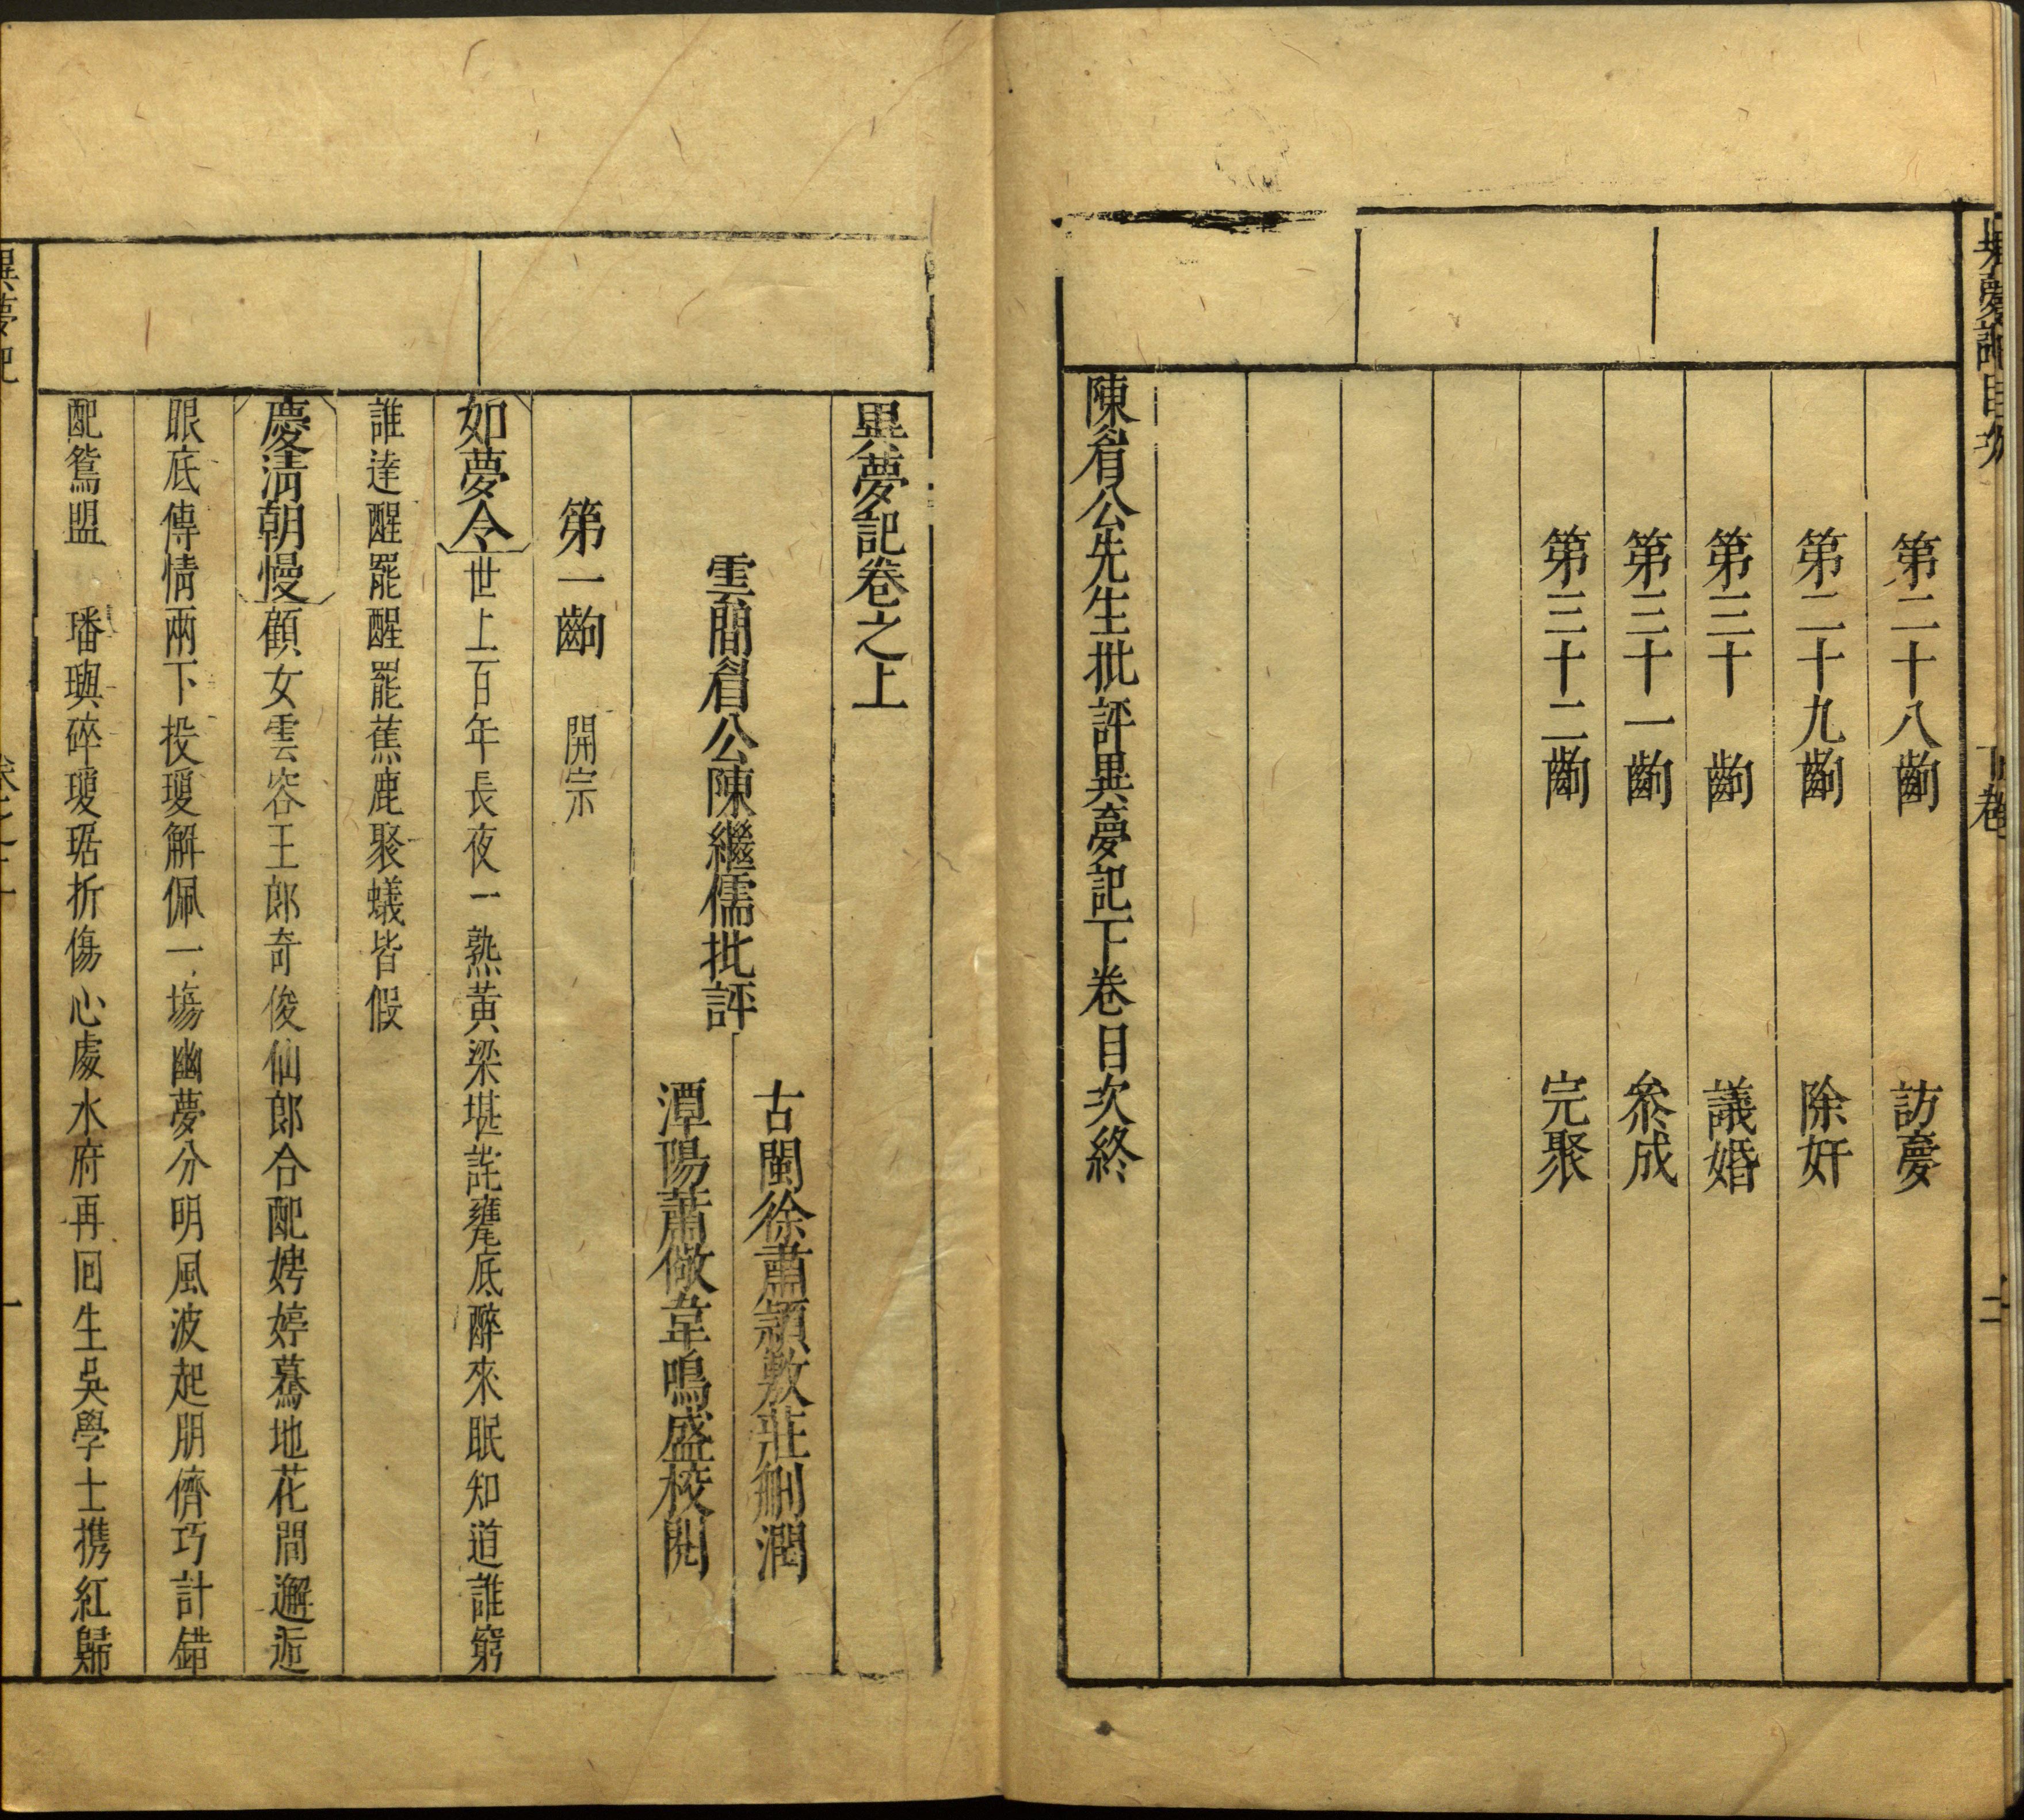 異夢記目次
下卷
二
第二十八齣 訪夢
第二十九齣 除奸
第三十齣 議婚
第三十一齣 叅成
第三十二齣 完聚
陳眉公先生批評異夢記下卷目次終
異夢記卷之上
雲間眉公陳繼儒批評
古閩徐肅頴敷莊刪潤
潭陽蕭儆韋鳴盛校閱
第一齣 開宗
如夢令世上百年長夜一熟黃粱堪詫甕底醉來眠知道誰窮
誰達醒罷醒罷蕉鹿聚蟻皆假
慶清朝慢顧女雲容王郎奇俊仙郎合配娉婷驀地花間邂逅
眼底傳情兩下投瓊解佩一塲幽夢分明風波起朋儕巧計錯
配鴛盟 璠璵碎瓊琚折傷心處水府再囘生吳學士携紅歸
異夢記
卷之上
一